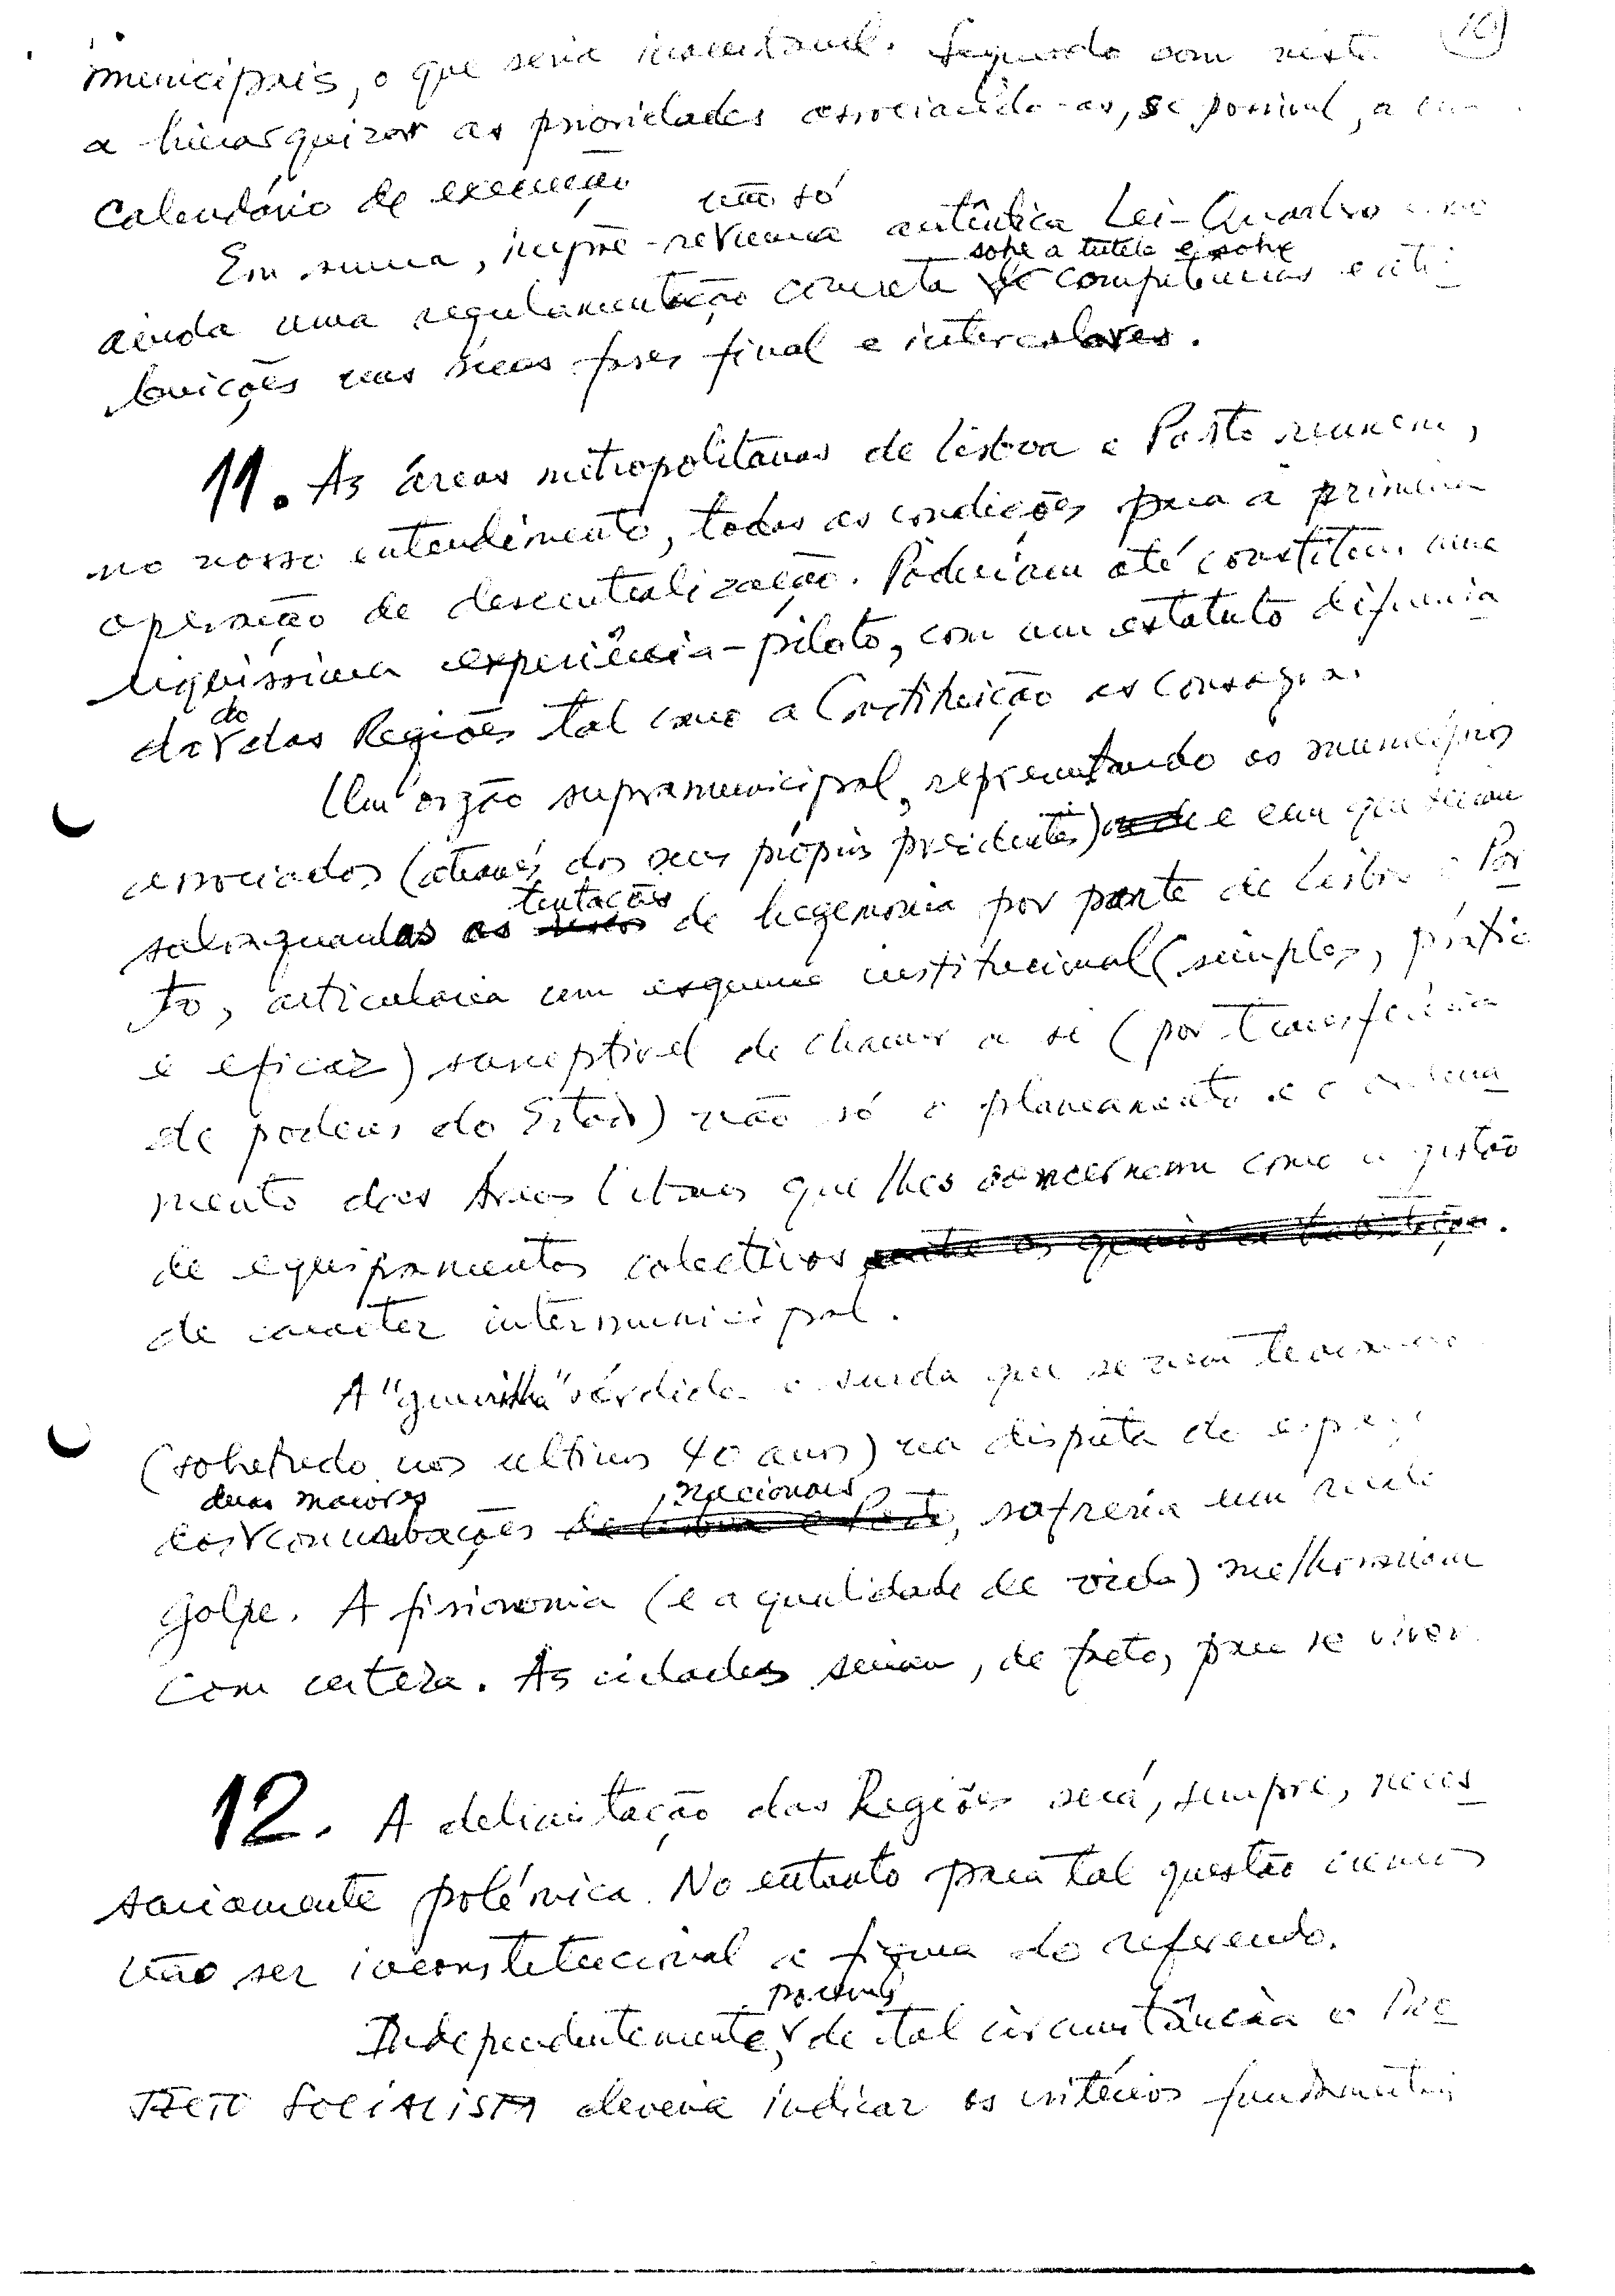 10
municipais, o que seria inaceitável. Segundo com vista
a hierarquizar as prioridades associando-as, se possível, a um
calendário de execução
não só
Em suma, impõe-se uma autêntica Lei-Quadro como
sobre a tutela e sobre
ainda uma regulamentação concreta de competências e atri
buições nas suas fases final e intercalares.
11. As áreas metropolitanas de Lisboa e Porto reunem,
no nosso entendimento, todas as condições para a primeira
operação de descentralização. Poderiam até constituir uma
riquíssima experiência-piloto, com um estatuto diferencia
do
das Regiões tal como a Constituição as consagra.
Um orgão supramunicipal, representando os municípios
associados (através dos seus próprios presidentes) e em que seriam
tentações
salvaguardadas as de hegemonia por parte de Lisboa e Por
to, articularia um esquema institucional (simples, prático
e eficaz) susceptível de chamar a si (por transferência
de poderes do Estado) não só o planeamento e o ordena
mento das áreas urbanas que lhes concernem como a gestão
de equipamentos colectivos
de caracter intermunicipal.
A "guerrilha" sórdida e surda que se vem travando
(sobretudo nos ultimos 40 anos) na disputa do espaço
duas maiores nacionais
das conurbações de Lisboa e Porto, sofreria um rude
golpe. A fisionomia (e a qualidade de vida) melhorariam
com certeza. As cidades seriam, de facto, para se viver.
12. A delimitação das Regiões será, sempre, neces
sariamente polémica. No entanto para tal questão cremos
não ser inconstitucional a figura do referendo.
porém
Independentemente, de tal circunstância o Par
TIDO SOCIALISTA deveria indicar os critérios fundamentais